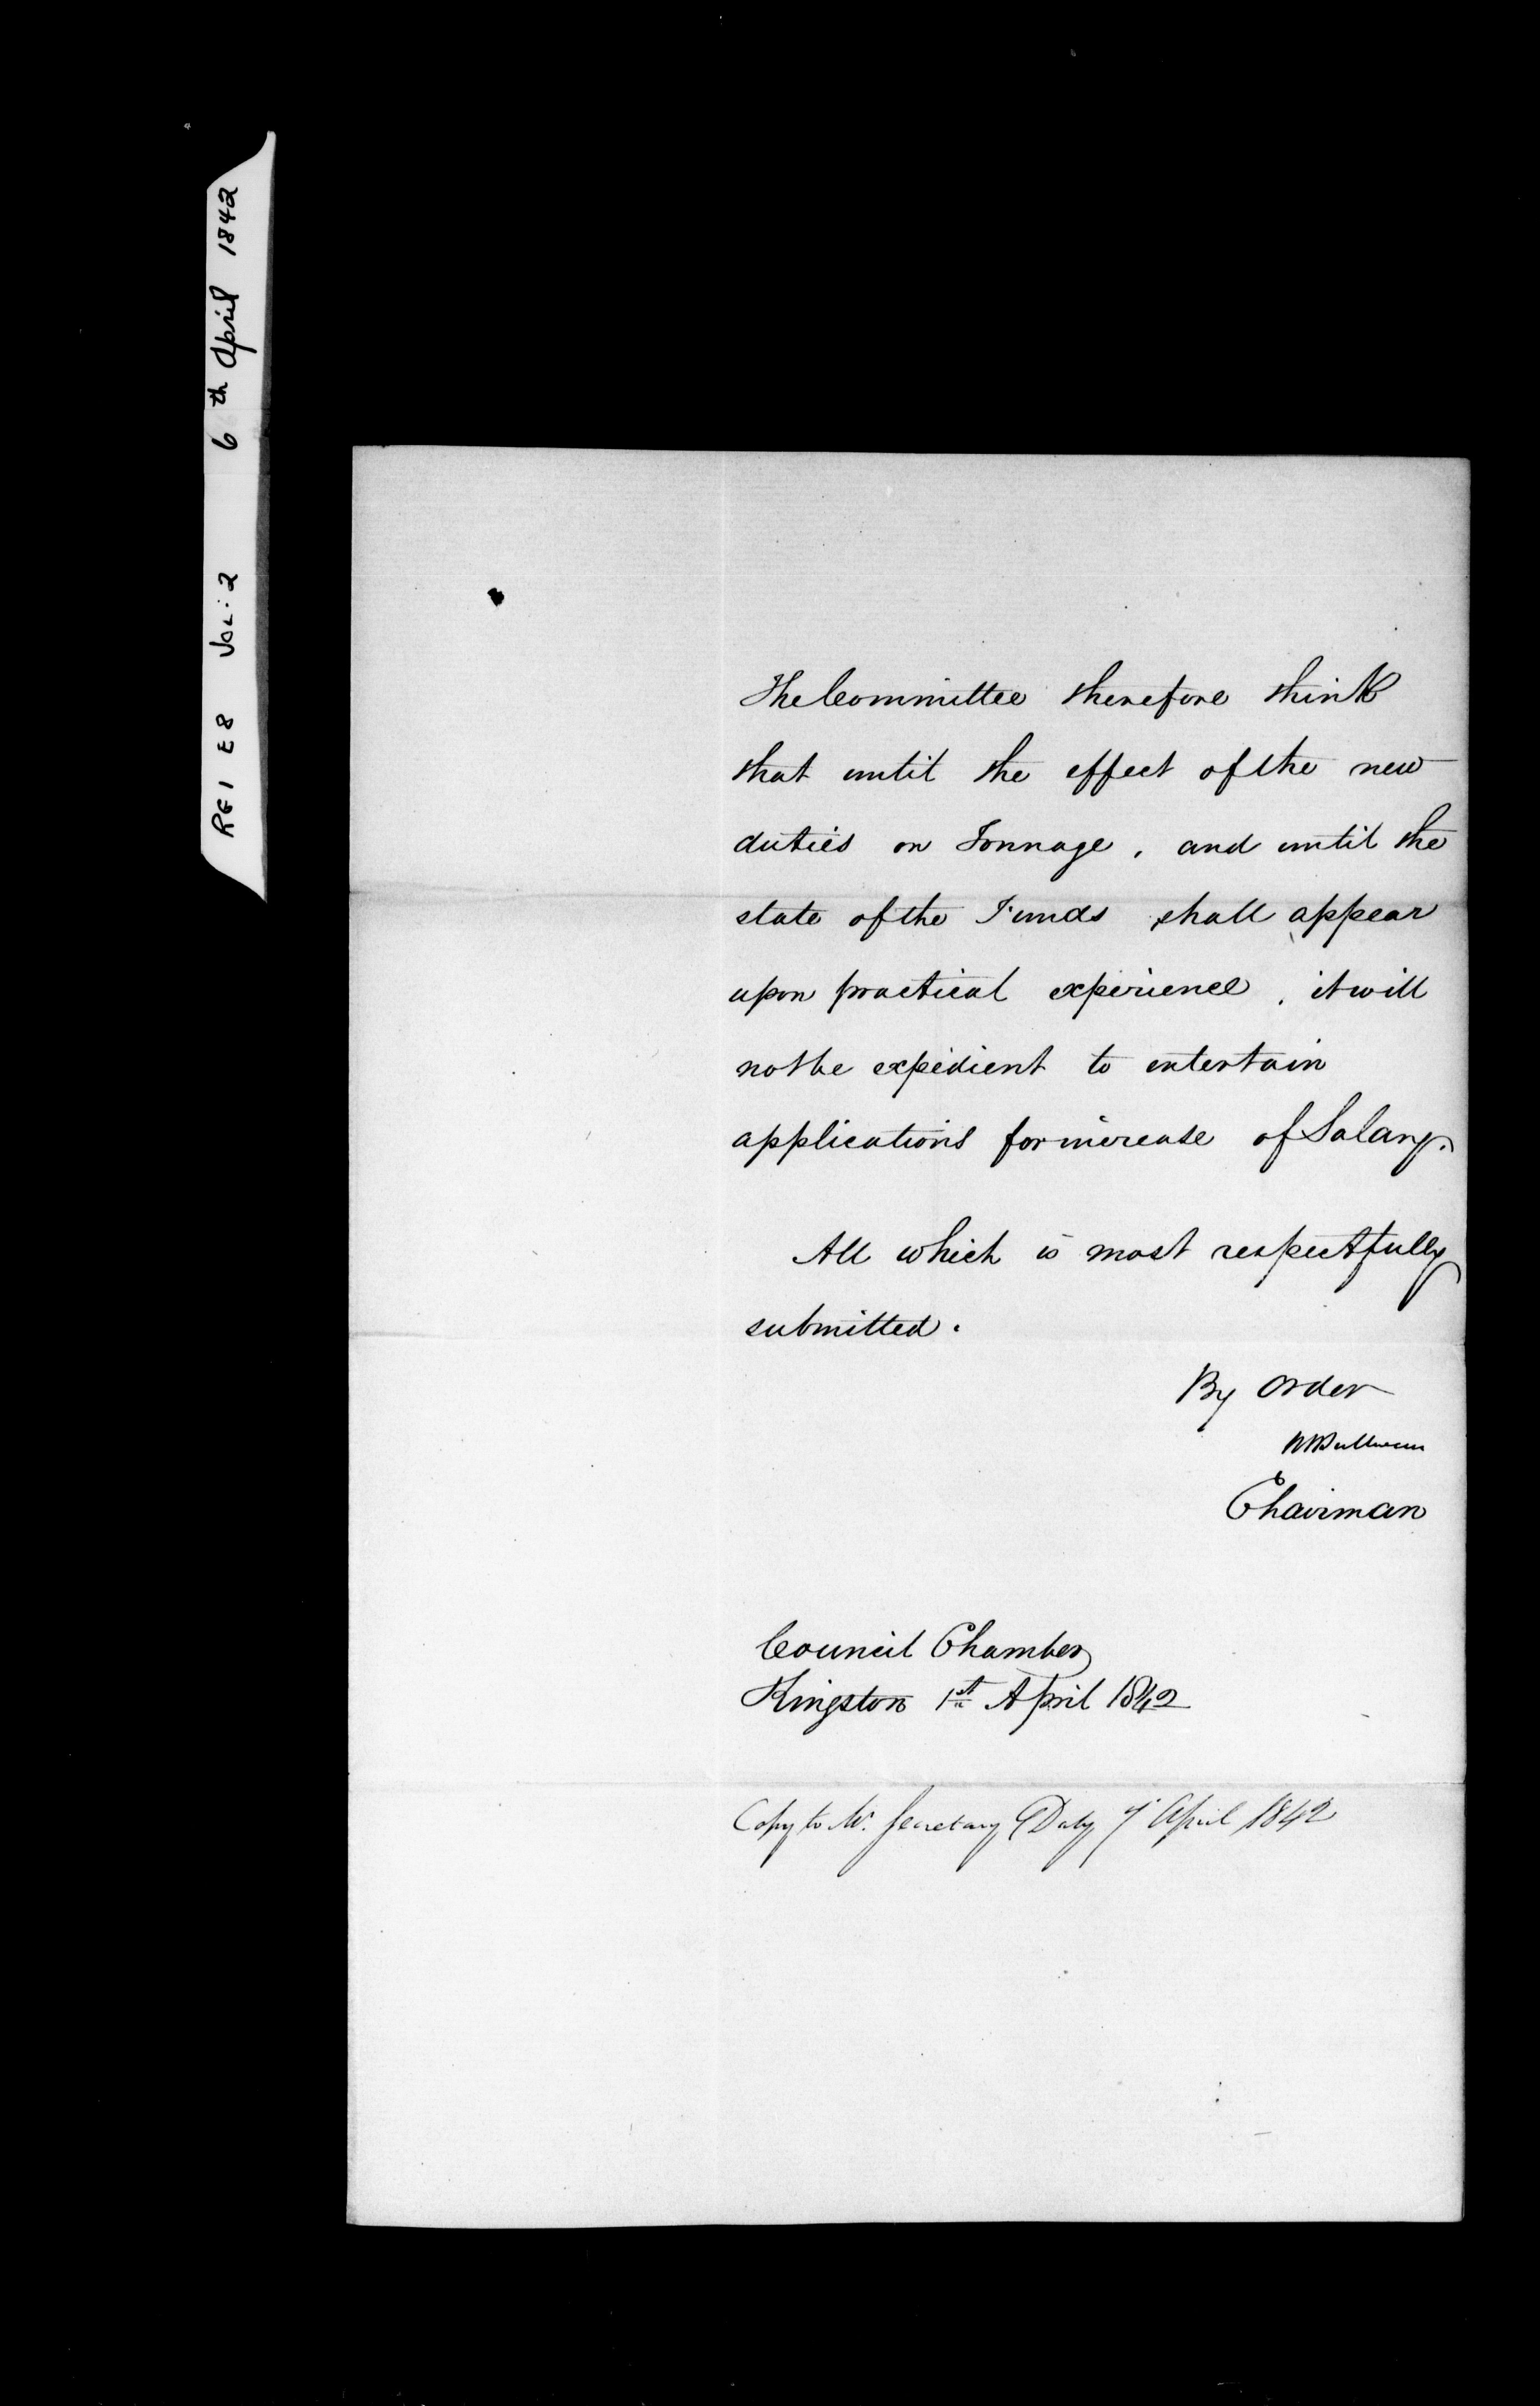 RG1 E8 VOL: 2 6th April 1842
The Committee therefore think
that until the effect of the new
duties on Tonnage, and until the
state of the Funds shall appear
upon practical experience, it will
not be expedient to entertain
applications for increase of Salary.
All which is most respectfully
submitted.
By Order
Chairman
Council Chamber
Kingston 1st April 1842
Copy to Mr. Secretary Daly 7 April 1842